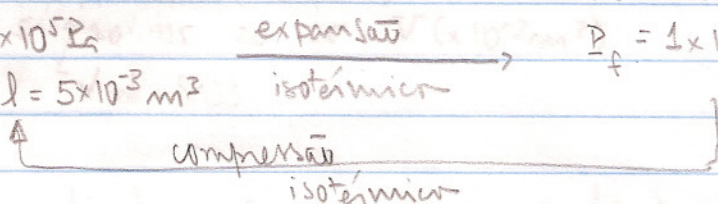 ×10⁵ Pa expansão P_f = 1×1
l = 5×10⁻³ m³ isotérmica
compressão
isotérmica